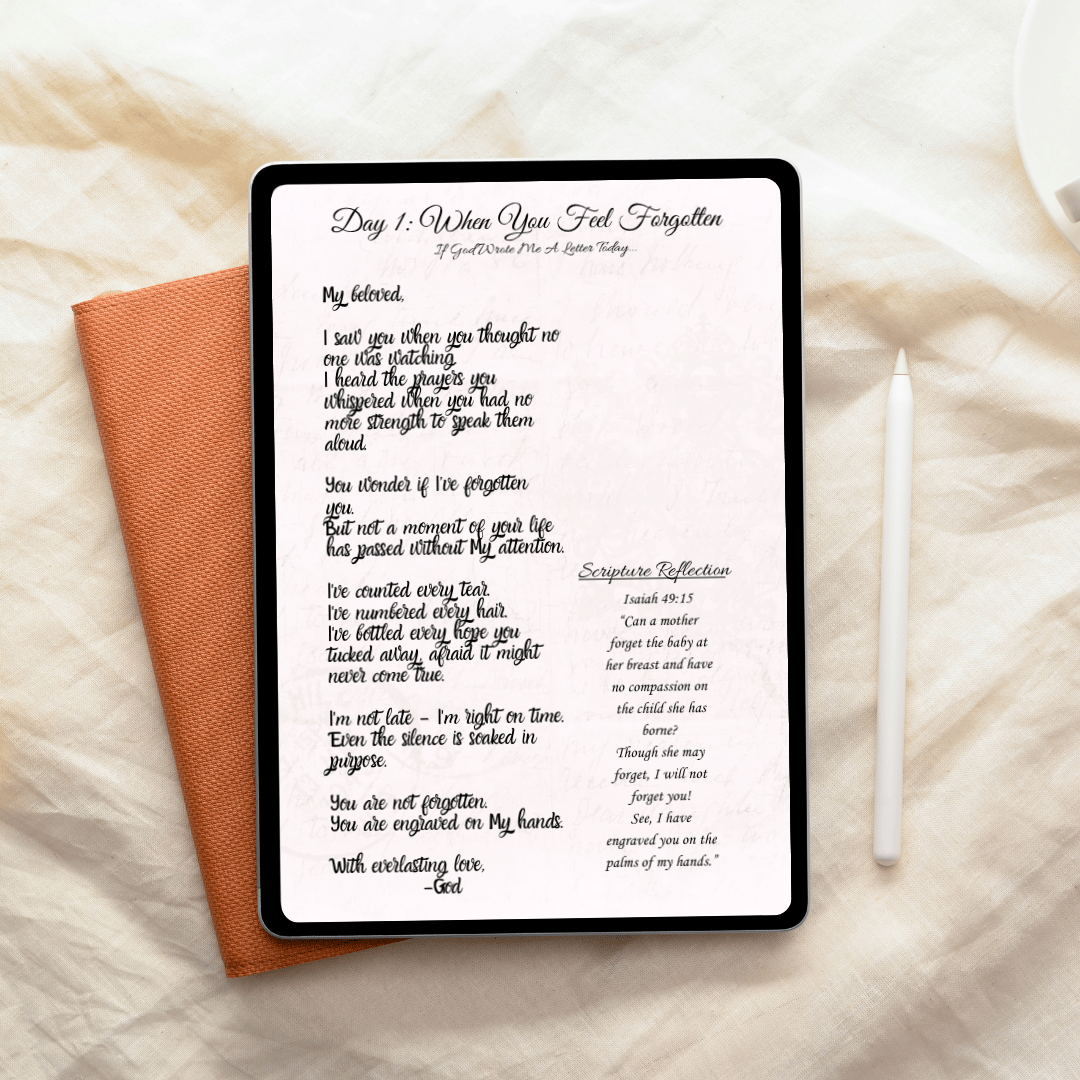 Day 1: When You Feel Forgotten
If God Wrote Me A Letter Today...
My beloved,
I saw you when you thought no
one was watching.
I heard the prayers you
whispered when you had no
more strength to speak them
aloud.
You wonder if I've forgotten
you.
But not a moment of your life
has passed without My attention.
I've counted every tear.
I've numbered every hair.
I've bottled every hope you
tucked away, afraid it might
never come true.
I'm not late – I'm right on time.
Even the silence is soaked in
purpose.
You are not forgotten.
You are engraved on My hands.
With everlasting love,
-God
Scripture Reflection
Isaiah 49:15
“Can a mother
forget the baby at
her breast and have
no compassion on
the child she has
borne?
Though she may
forget, I will not
forget you!
See, I have
engraved you on the
palms of my hands.”